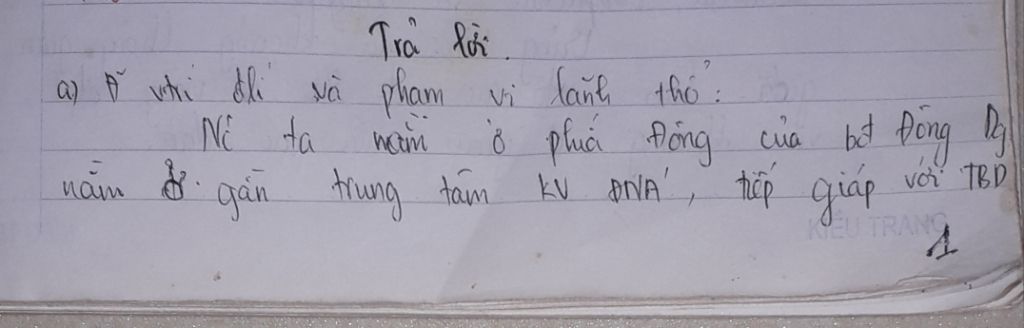 Trả lời.
a) Đ² vtrí đlí và phạm vi lãnh thổ:
Nc ta nằm ở phía Đông của bđ Đông Dg
nằm gần trung tâm KV ĐNA', tiếp giáp với TBD
KIỀU TRANG
1